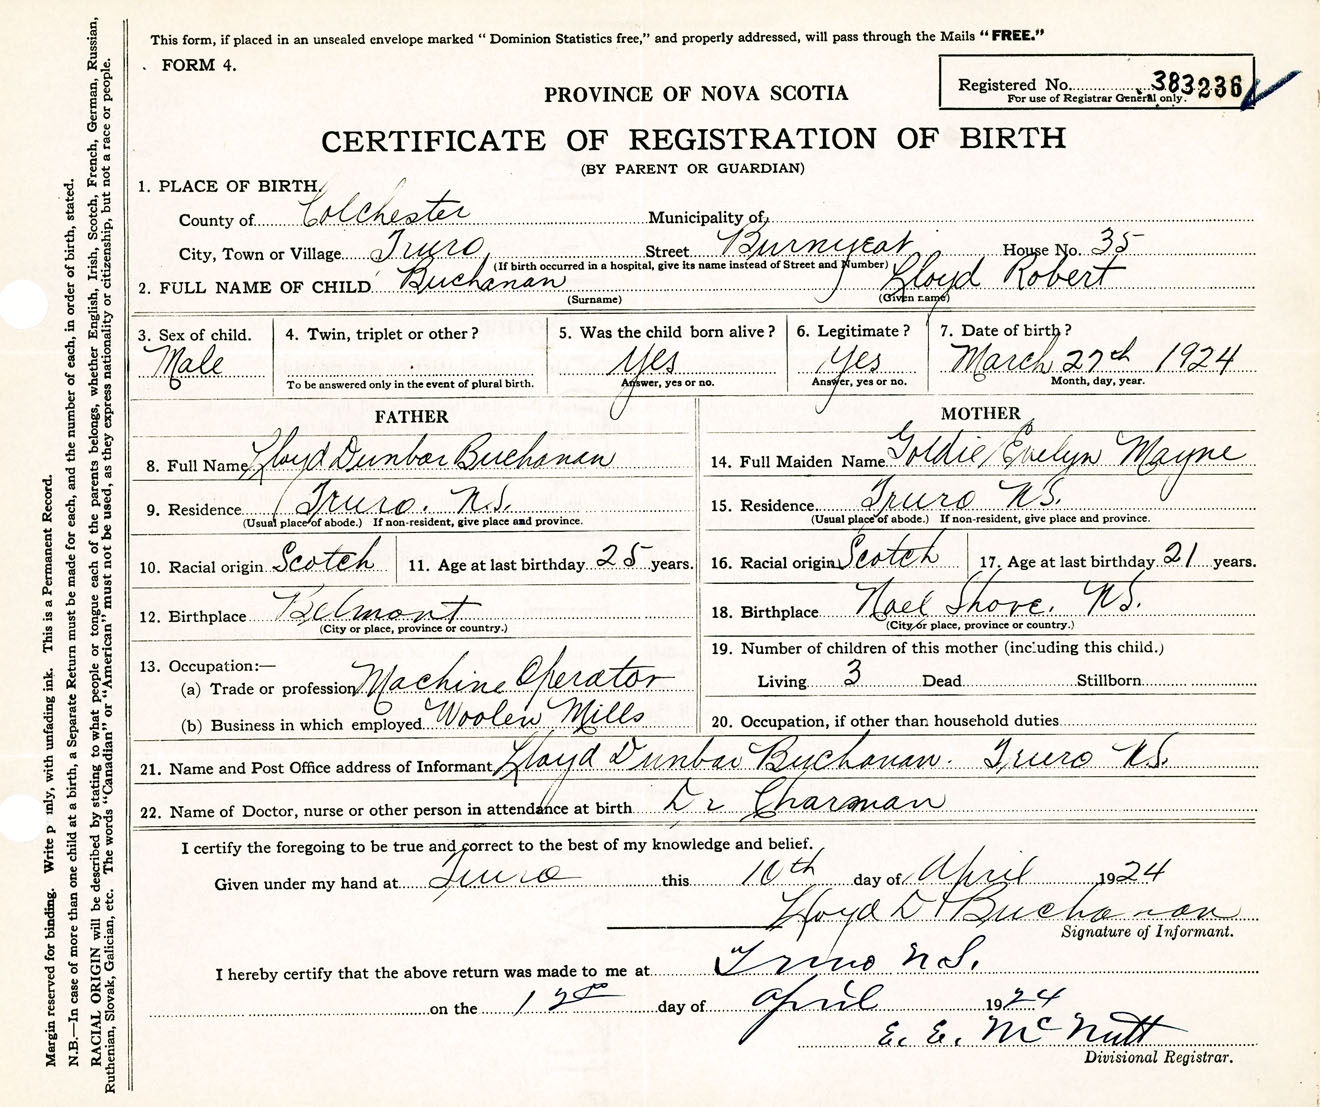 This form, if placed in an unsealed envelope marked " Dominion Statistics free," and properly addressed, will pass through the Mails " FREE."
FORM 4.
Registered No. 383236
For use of Registrar General only.
PROVINCE OF NOVA SCOTIA
CERTIFICATE OF REGISTRATION OF BIRTH
(BY PARENT OR GUARDIAN)
1. PLACE OF BIRTH.
County of Colchester Municipality of
City, Town or Village Truro Street Burnyeat House No. 35
(If birth occurred in a hospital, give its name instead of Street and Number)
2. FULL NAME OF CHILD Buchanan Lloyd Robert
(Surname) (Given name)
3. Sex of child. 4. Twin, triplet or other? 5. Was the child born alive? 6. Legitimate? 7. Date of birth?
Male Yes Yes March 27th 1924
To be answered only in the event of plural birth. Answer, yes or no. Answer, yes or no. Month, day, year.
FATHER
8. Full Name Lloyd Dunbar Buchanan
9. Residence Truro. N.S.
(Usual place of abode.) If non-resident, give place and province.
10. Racial origin Scotch 11. Age at last birthday 25 years.
12. Birthplace Belmont
(City or place, province or country.)
13. Occupation:—
(a) Trade or profession Machine Operator
(b) Business in which employed Woolen Mills
MOTHER
14. Full Maiden Name Goldie Evelyn Mayne
15. Residence Truro N.S.
(Usual place of abode.) If non-resident, give place and province.
16. Racial origin Scotch 17. Age at last birthday 21 years.
18. Birthplace Noel Shore. N.S.
(City or place, province or country.)
19. Number of children of this mother (including this child.)
Living 3 Dead Stillborn
20. Occupation, if other than household duties
21. Name and Post Office address of Informant Lloyd Dunbar Buchanan. Truro N.S.
22. Name of Doctor, nurse or other person in attendance at birth Dr Charman
I certify the foregoing to be true and correct to the best of my knowledge and belief.
Given under my hand at Truro this 10th day of April 1924
Lloyd D Buchanan
Signature of Informant.
I hereby certify that the above return was made to me at Truro N.S.
on the 12 day of April 1924
E. E. McNutt
Divisional Registrar.
Margin reserved for binding. Write p nly, with unfading ink. This is a Permanent Record.
N.B.—In case of more than one child at a birth, a Separate Return must be made for each, and the number of each, in order of birth, stated.
RACIAL ORIGIN will be described by stating to what people or tongue each of the parents belongs, whether English, Irish, Scotch, French, German, Russian,
Ruthenian, Slovak, Galician, etc. The words "Canadian" or "American" must not be used, as they express nationality or citizenship, but not a race or people.